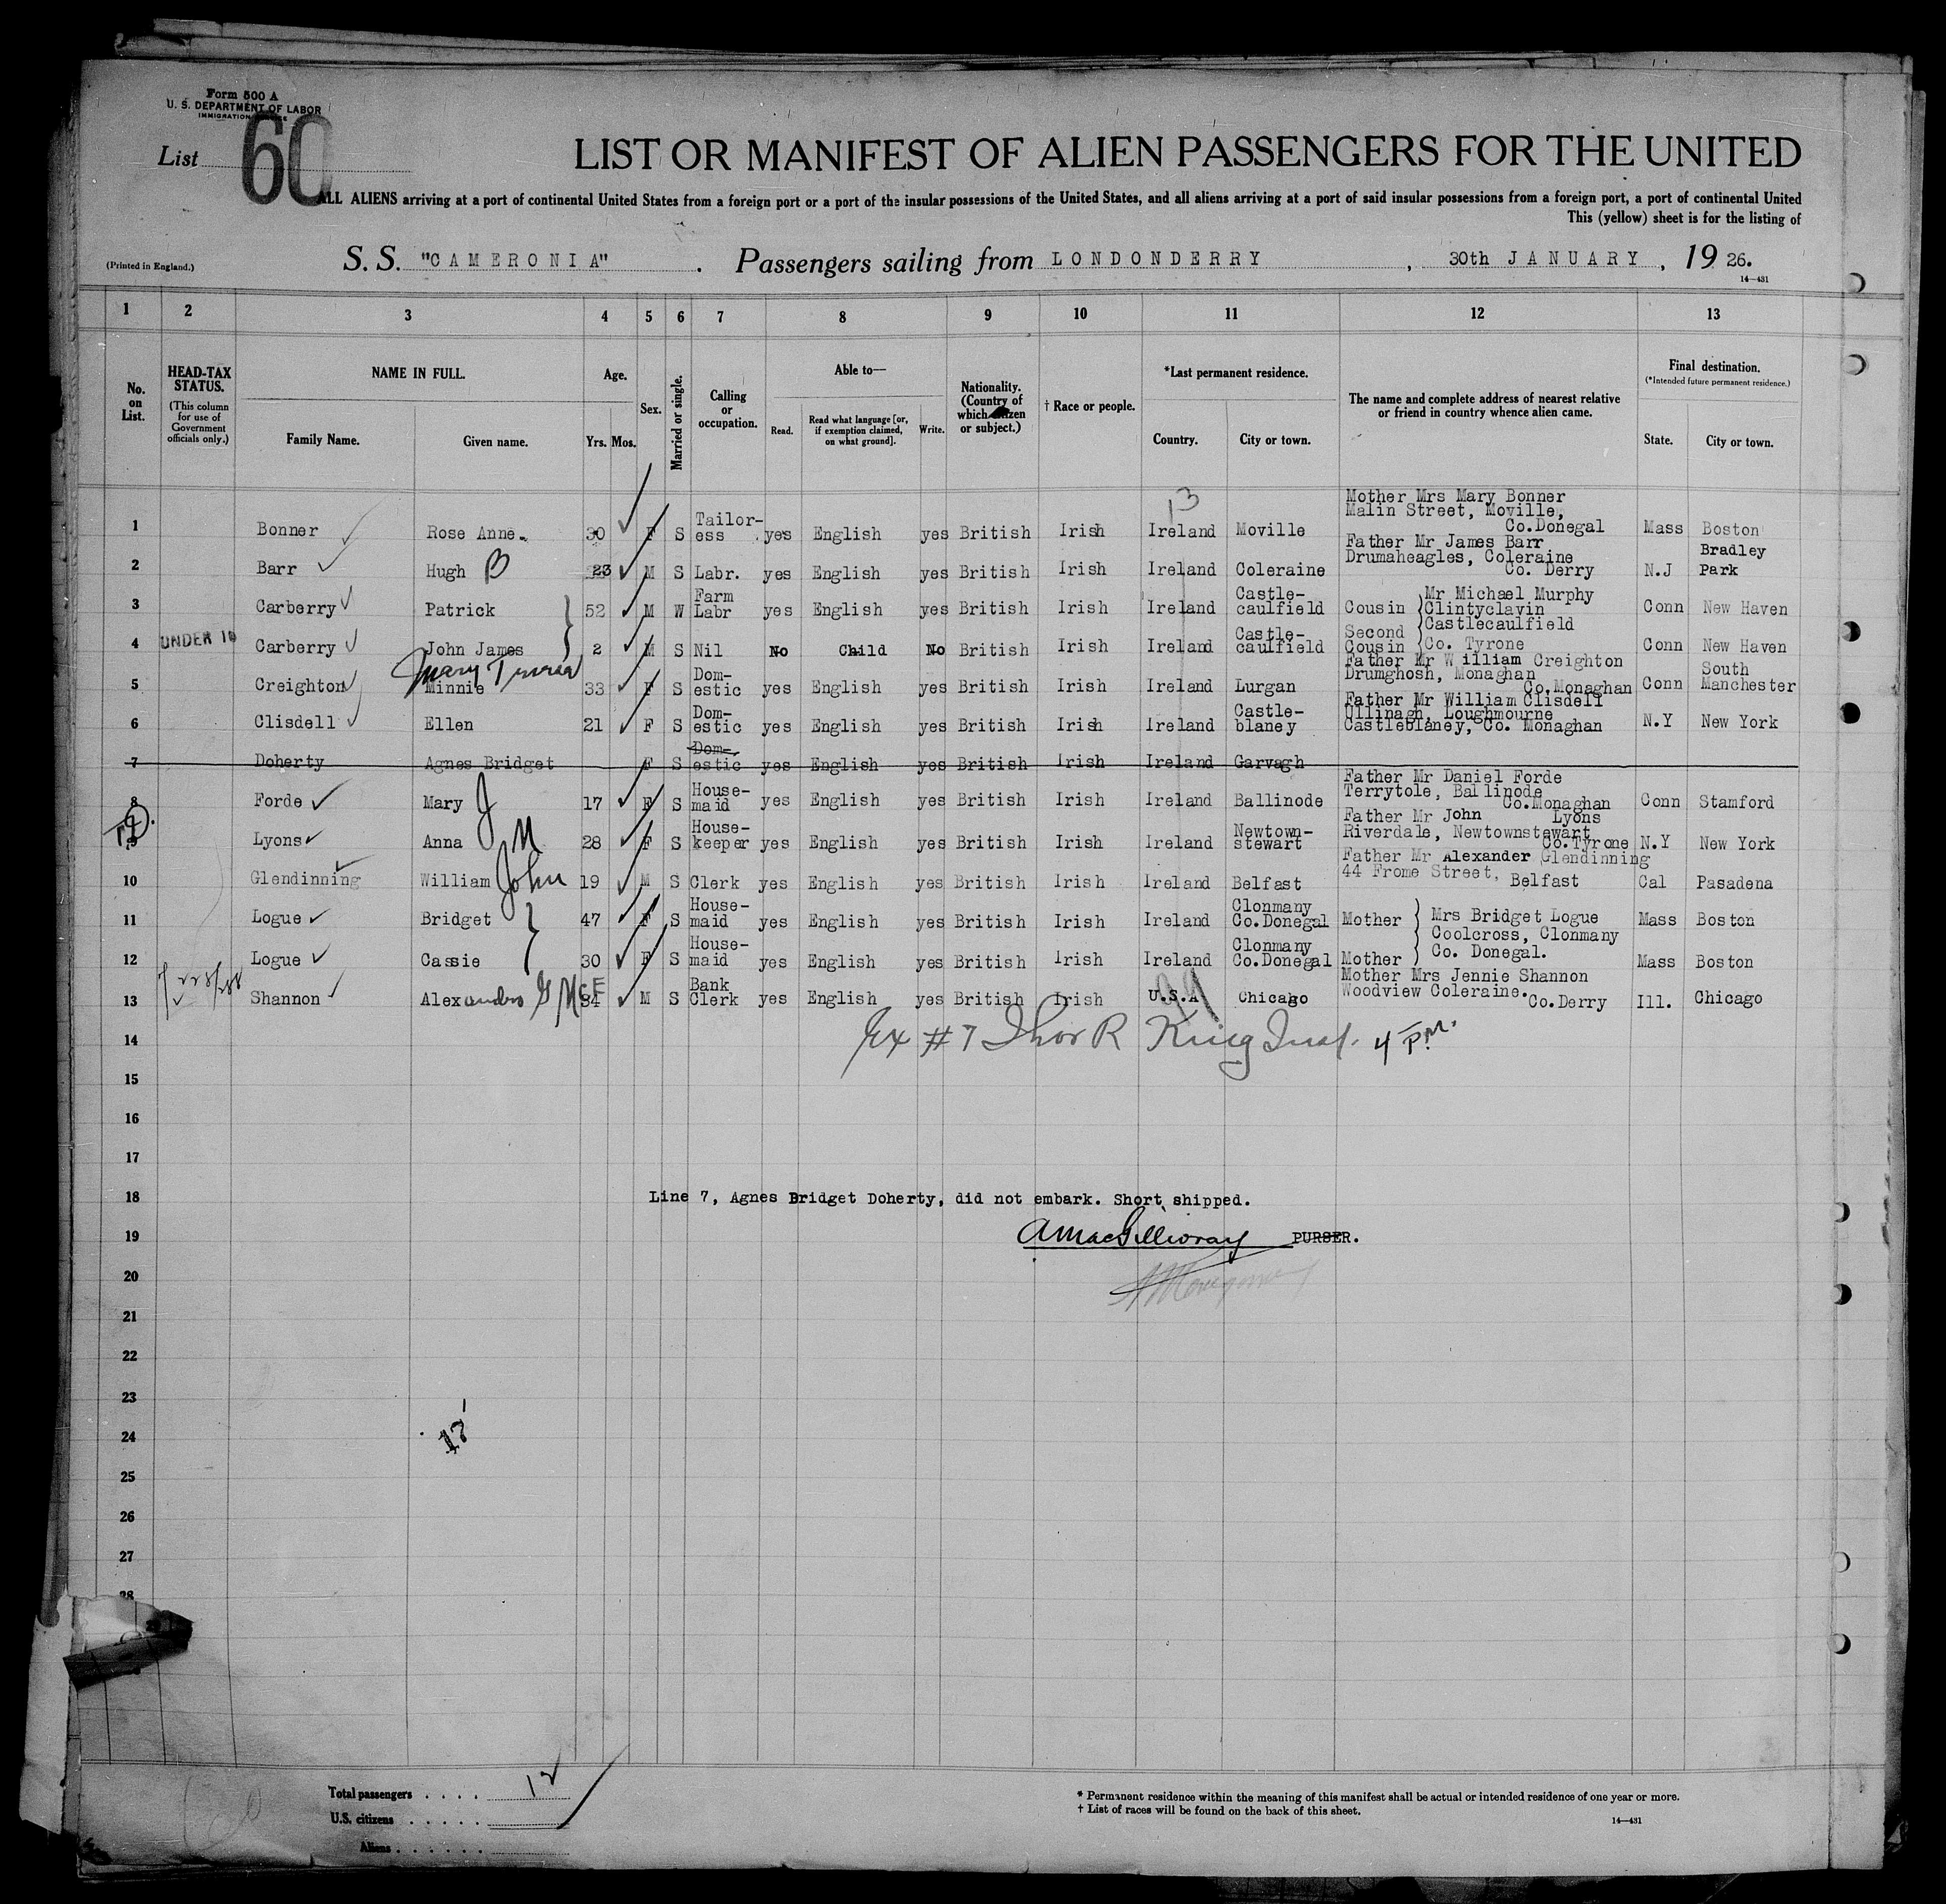 Form 500 A
U. S. DEPARTMENT OF LABOR
IMMIGRATION SERVICE
List 60
LIST OR MANIFEST OF ALIEN PASSENGERS FOR THE UNITED
ALL ALIENS arriving at a port of continental United States from a foreign port or a port of the insular possessions of the United States, and all aliens arriving at a port of said insular possessions from a foreign port, a port of continental United
This (yellow) sheet is for the listing of
(Printed in England.)
S. S. "CAMERONIA" . Passengers sailing from LONDONDERRY , 30th JANUARY , 19 26.
14—431
1 2 3 4 5 6 7 8 9 10 11 12 13
No. on List.
HEAD-TAX STATUS.
(This column for use of Government officials only.)
NAME IN FULL.
Family Name. Given name.
Age.
Yrs. Mos.
Sex.
Married or single.
Calling or occupation.
Able to—
Read. Read what language [or, if exemption claimed, on what ground]. Write.
Nationality. (Country of which citizen or subject.)
† Race or people.
*Last permanent residence.
Country. City or town.
The name and complete address of nearest relative or friend in country whence alien came.
Final destination.
(*Intended future permanent residence.)
State. City or town.
13
1 Bonner Rose Anne. 30 F S Tailor-ess yes English yes British Irish Ireland Moville Mother Mrs Mary Bonner Malin Street, Moville, Co.Donegal Mass Boston
2 Barr Hugh B 23 M S Labr. yes English yes British Irish Ireland Coleraine Father Mr James Barr Drumaheagles, Coleraine Co. Derry N.J Bradley Park
3 Carberry Patrick 52 M W Farm Labr yes English yes British Irish Ireland Castle-caulfield Cousin Mr Michael Murphy Clintyclavin Castlecaulfield Conn New Haven
4 UNDER 16 Carberry John James 2 M S Nil No Child No British Irish Ireland Castle-caulfield Second Cousin Co. Tyrone Conn New Haven
5 Creighton Minnie Mary 33 F S Dom-estic yes English yes British Irish Ireland Lurgan Father Mr William Creighton Drumghosh, Monaghan Co.Monaghan Conn South Manchester
6 Clisdell Ellen 21 F S Dom-estic yes English yes British Irish Ireland Castle-blaney Father Mr William Clisdell Ullinagh, Loughmourne Castleblaney, Co. Monaghan N.Y New York
7 Doherty Agnes Bridget F S Dom-estic yes English yes British Irish Ireland Garvagh
8 Forde Mary J 17 F S House-maid yes English yes British Irish Ireland Ballinode Father Mr Daniel Forde Terrytole, Ballinode Co.Monaghan Conn Stamford
9 Lyons Anna M 28 F S House-keeper yes English yes British Irish Ireland Newtown-stewart Father Mr John Lyons Riverdale, Newtownstewart Co.Tyrone N.Y New York
10 Glendinning William John 19 M S Clerk yes English yes British Irish Ireland Belfast Father Mr Alexander Glendinning 44 Frome Street, Belfast Cal Pasadena
11 Logue Bridget 47 F S House-maid yes English yes British Irish Ireland Clonmany Co.Donegal Mother Mrs Bridget Logue Coolcross, Clonmany Mass Boston
12 Logue Cassie 30 F S House-maid yes English yes British Irish Ireland Clonmany Co.Donegal Mother Co. Donegal. Mass Boston
13 Shannon Alexander G McF 34 M S Bank Clerk yes English yes British Irish U.S.A Chicago Mother Mrs Jennie Shannon Woodview Coleraine. Co.Derry Ill. Chicago
14 Ex #7 R King Insp. 4 PM.
15
16
17
18 Line 7, Agnes Bridget Doherty, did not embark. Short shipped.
19 AMacGillivray PURSER.
20
21
22
23
24 17
25
26
27
28
Total passengers . . . . 12
U.S. citizens . . . . .
Aliens . . . . . .
* Permanent residence within the meaning of this manifest shall be actual or intended residence of one year or more.
† List of races will be found on the back of this sheet.
14—431